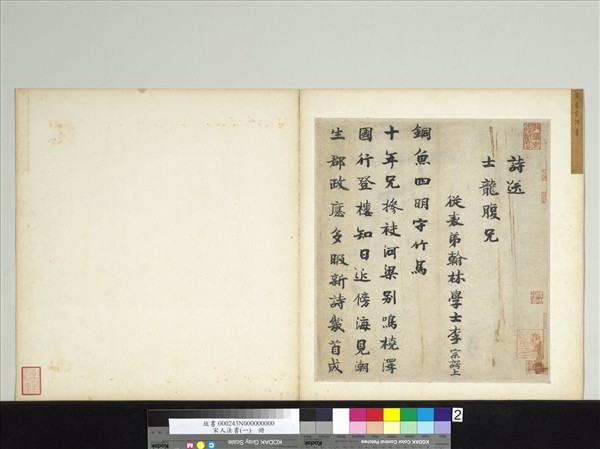 詩送
士龍腹兄
從表弟翰林學士李宗諤上
銅魚四明守竹馬
十年兄摻袂河梁別鳴橈澤
國行登樓知日近傍海見潮
生郡政應多暇新詩幾首成
故書 000243N000000000
宋人法書(一) 冊
KODAK Gray Scale
Kodak
2